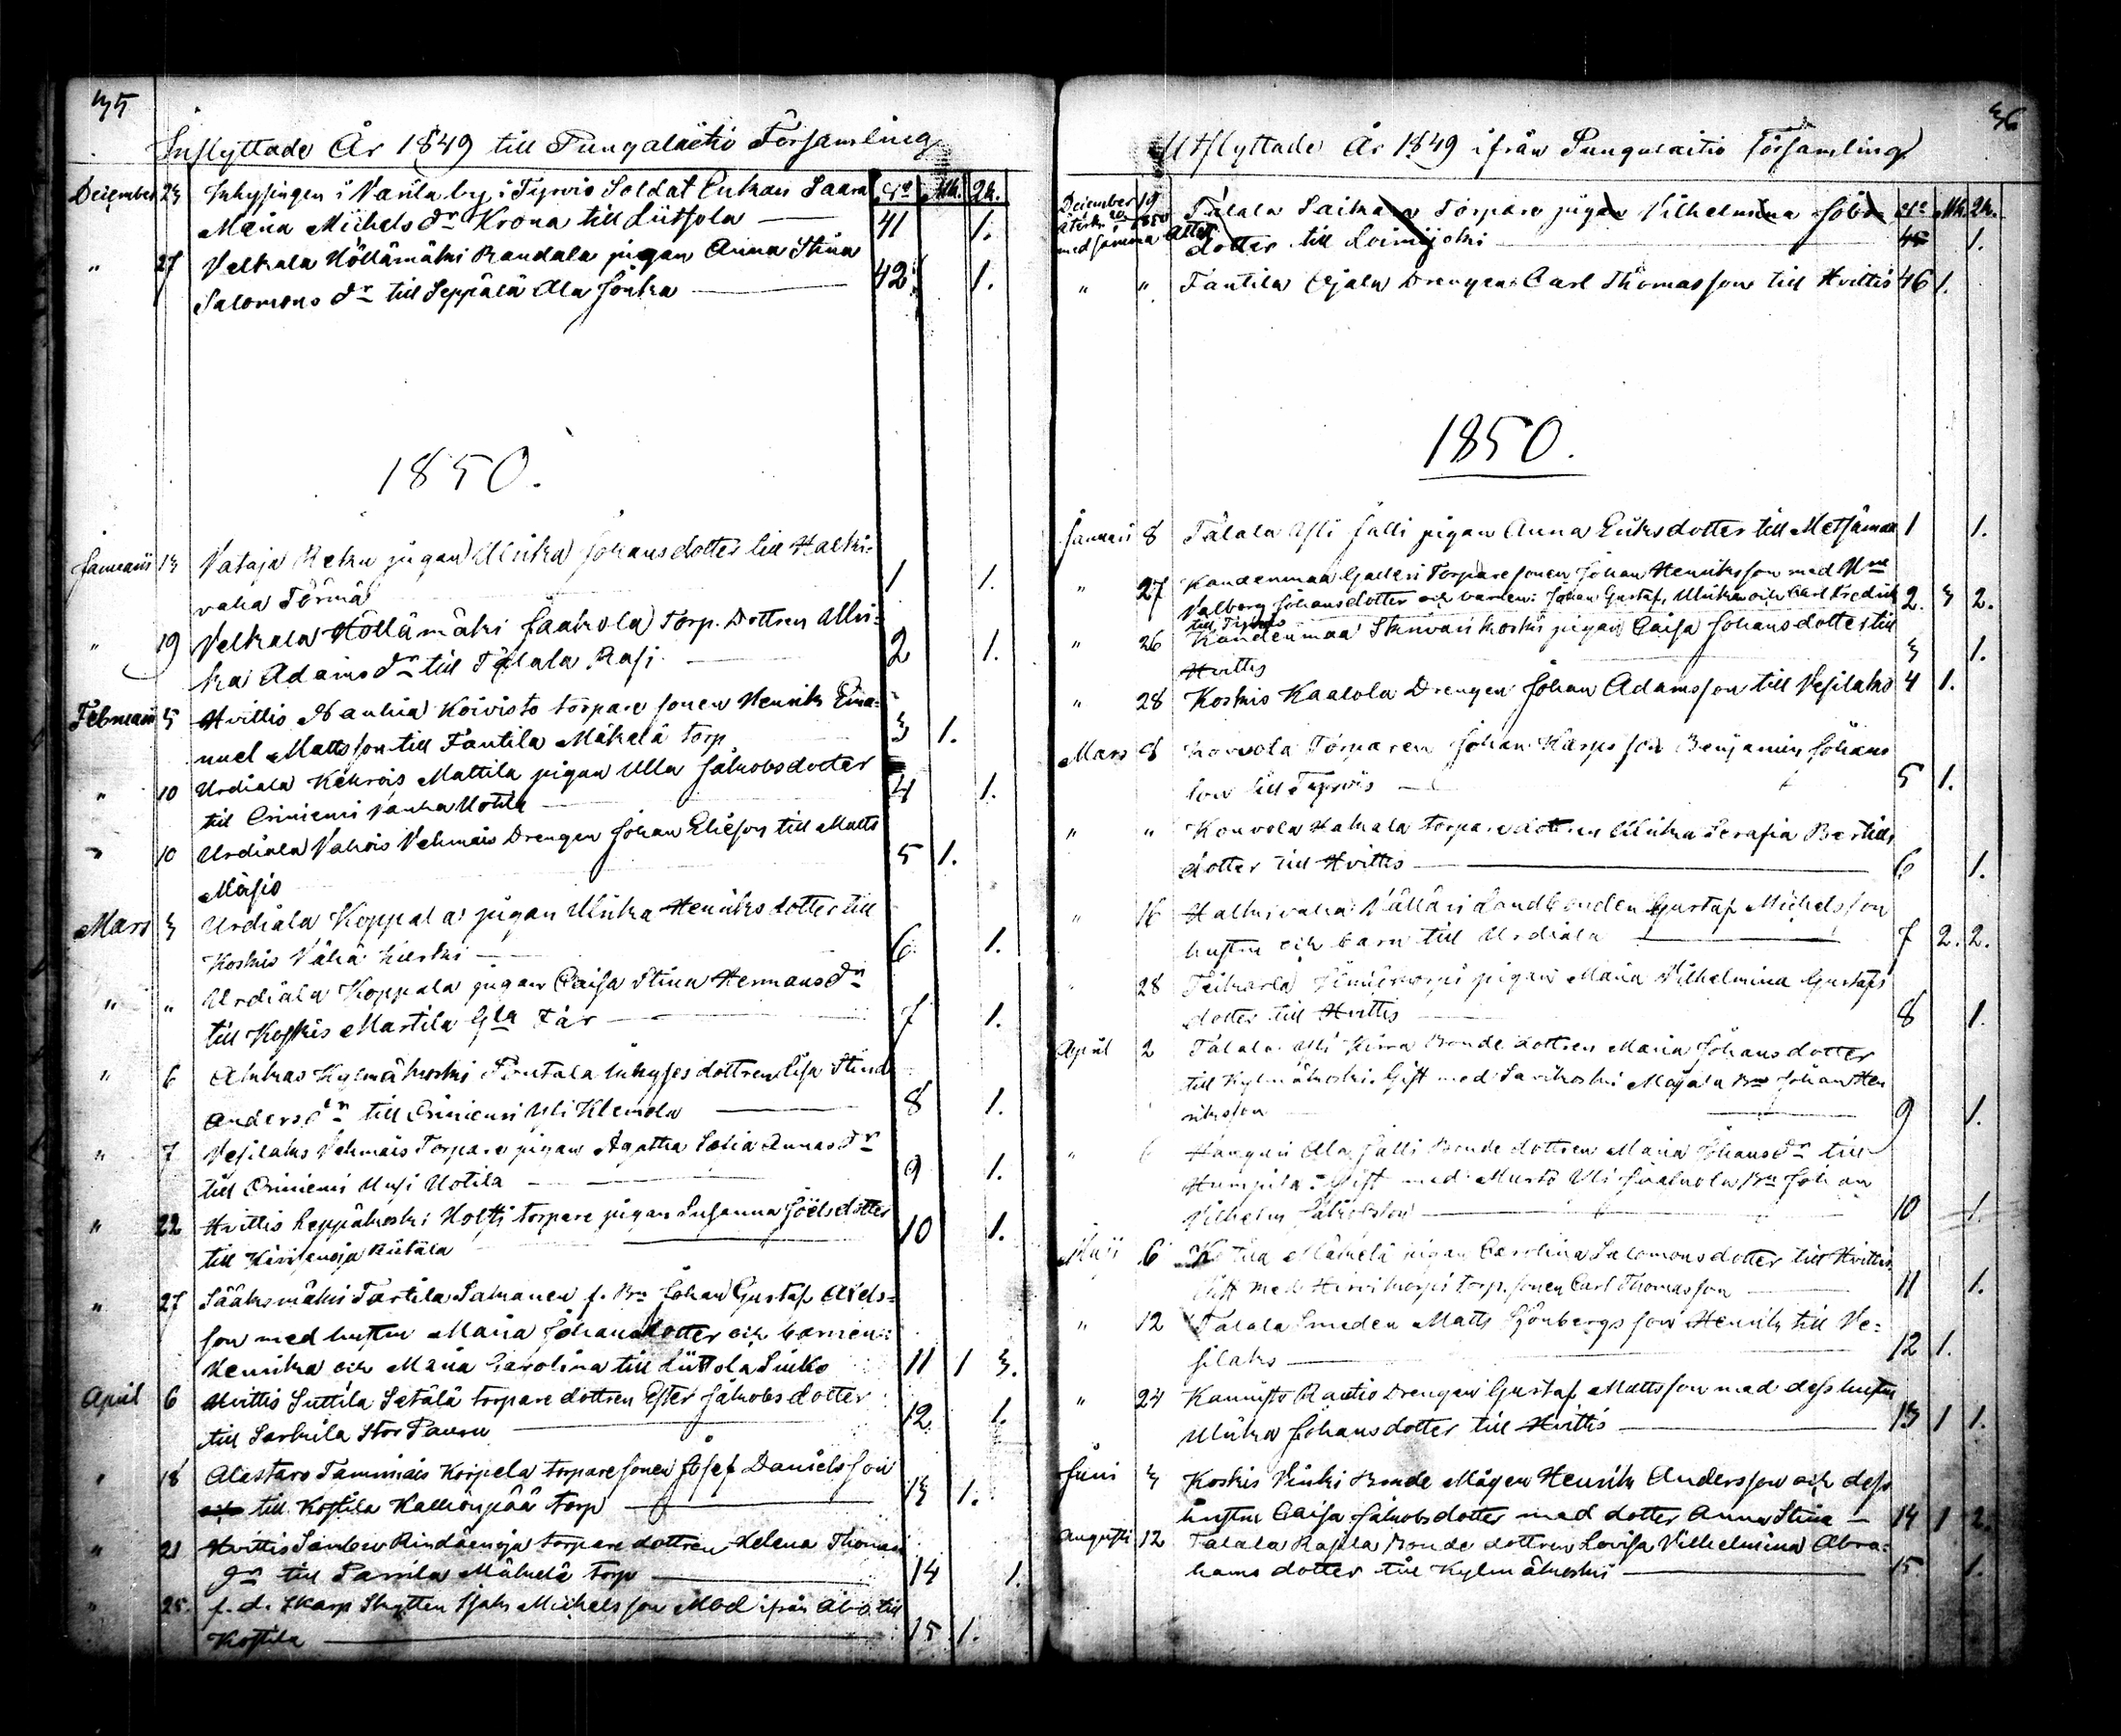 35
Inflyttade År 1849 till Pungalaitio Församling
December 23 Inhysingen i Varila by i Tyrvis Soldat Enkan Saara No Mk. Qk.
Maria Michels dr Krona till Liitsola — 41 1.
" 27 Velkala Höllämäki Randala pigan Anna Stina
Salomons dr till Seppälä Ala Jönka — 42 1.
1850.
Januarii 13 Vataja Keku pigan Ulrika Johansdotter till Halki-
vaha Törmä 1 1.
" 19 Velkala Höllämäki Jaakola Torp. Dottren Ulri-
ka Adams dr till Tälala Rasi — 2 1.
Februarii 5 Hvittis Nanhia Koivisto torpare sonen Henrik Ema-
nuel Mattsson till Fantila Mäkelä torp 3 1.
" 10 Urdiala Kehrois Mattila pigan Ulla Jakobsdotter
till Oriniemi Vanha Uotila — 4 1.
" 10 Urdiala Vahois Vehmais Drengen Johan Elieson till Matts 5 1.
Mäsio
Mars 3 Urdiala Koppala pigan Ulrika Henriksdotter till
Koskis Vähä — 6 1.
" " Urdiala Koppala pigan Caisa Stina Hermans dr
till Koskis Martila Gla Fär — 7 1.
" 6 Akkas Kylmäkoski Pentala inhyses dottren Lisa Stina
Anders dr till Oriniemi Yli Klemola — 8 1.
" 7 Vesilaks Vehmais Torpare pigan Agatha Sofia Annas dr
till Oriniemi Uusi Uotila — 9 1.
" 22 Hvittis Leppäkoski Holtti torpare pigan Susanna Joëlsdotter
till Kirstenoja Riitäla — 10 1.
" 27 Sääksmäki Tartila Sakanen f. Bn Johan Gustaf Arids-
son med hustru Maria Johansdotter och barnen:
Henrika och Maria Carolina till Liitsola Sirko 11 1 3.
April 6 Hvittis Suttila Sätälä torpare dottren Ester Jakobsdotter
till Sarkila Stor Pauru — 12. 1.
" 18 Alastaro Tammiais Korpela torpare sonen Josef Danielsson
till Kostila Kallionpää torp — 13 1.
" 21 Hvittis Sambu Rindäenoja torpare dottren Helena Thomas
dr till Parrila Mäkelä torp — 14 1.
" 25. f. d. Skarp Skytten Isak Michelsson Mod ifrån Åbo till
Kostila — 15 1.
36
Utflyttade År 1849 ifrån Pungalaitio Församling
December 19 Tälala Saikara Torpare pigan Vilhelmina Jobs No Mk. Qk.
återk. 20 1850 med samma Attest dotter till Loimijoki — 45 1.
" " Fantila Ojala Drengen Carl Thomasson till Hvittis 46 1.
1850.
Januari 8 Tälala Yli Jalli pigan Anna Eriksdotter till Metsämaa 1 1.
" 27 Kandenmaa Galleri Torpare sonen Johan Henriksson med Hru
Valborg Johansdotter och barnen: Johan Gustaf, Ulrika och Carl Fredrik 2. 3 2.
till Tyrvis
" 26 Kandenmaa Skrivari koski pigan Caisa Johansdotter till
Hvittis 3 1.
" 28 Koskis Kaalola Drengen Johan Adamsson till Vesilaks 4 1.
Mars 8 Kouvola Torparen Johan Karps son Benjamin Johans
son till Tyrvis — 5 1.
" " Kouvola Hakala torpare dottren Ulrika Serafia Bertils
dotter till Hvittis — 6 1.
" 16 Halkivaha Vällari Landbonden Gustaf Michelsson
hustru och barn till Urdiala — 7 2. 2.
28 pigan Maria Vilhelmina Gustafs
dotter till Hvittis — 8 1.
April 2 Tälala Yli Kirra Bonde dottren Maria Johansdotter
till Kylmäkoski. Gift med Savikoski Majala Bn Johan Hen
riksson — 9 1.
" 6 Kanguri Ala Jalli Bonde dottren Maria Johans dr till
Humpila. Gift med Murto Yli Jaakola Bn Johan
Vilhelm Jakobsson — 10 1.
Maji 6 Kotila Mäkelä pigan Carolina Salomonsdotter till Hvittis
Gift med Hirvikorpi torp. sonen Carl Thomasson — 11 1.
" 12 Tälala Smeden Matts Sjönbergs son Henrik till Ve-
silaks — 12 1.
" 24 Kannisto Rautio Drengen Gustaf Mattsson med dess hustru
Ulrika Johansdotter till Hvittis — 13 1 1.
Juni 3 Koskis Vinki Bonde Mågen Henrik Andersson och dess
hustru Caisa Jakobsdotter med dotter Anna Stina — 14 1 2.
Augusti 12 Tälala Rapila Bonde dottren Lovisa Vilhelmina Abra-
hams dotter till Kylmäkoski — 15 1.